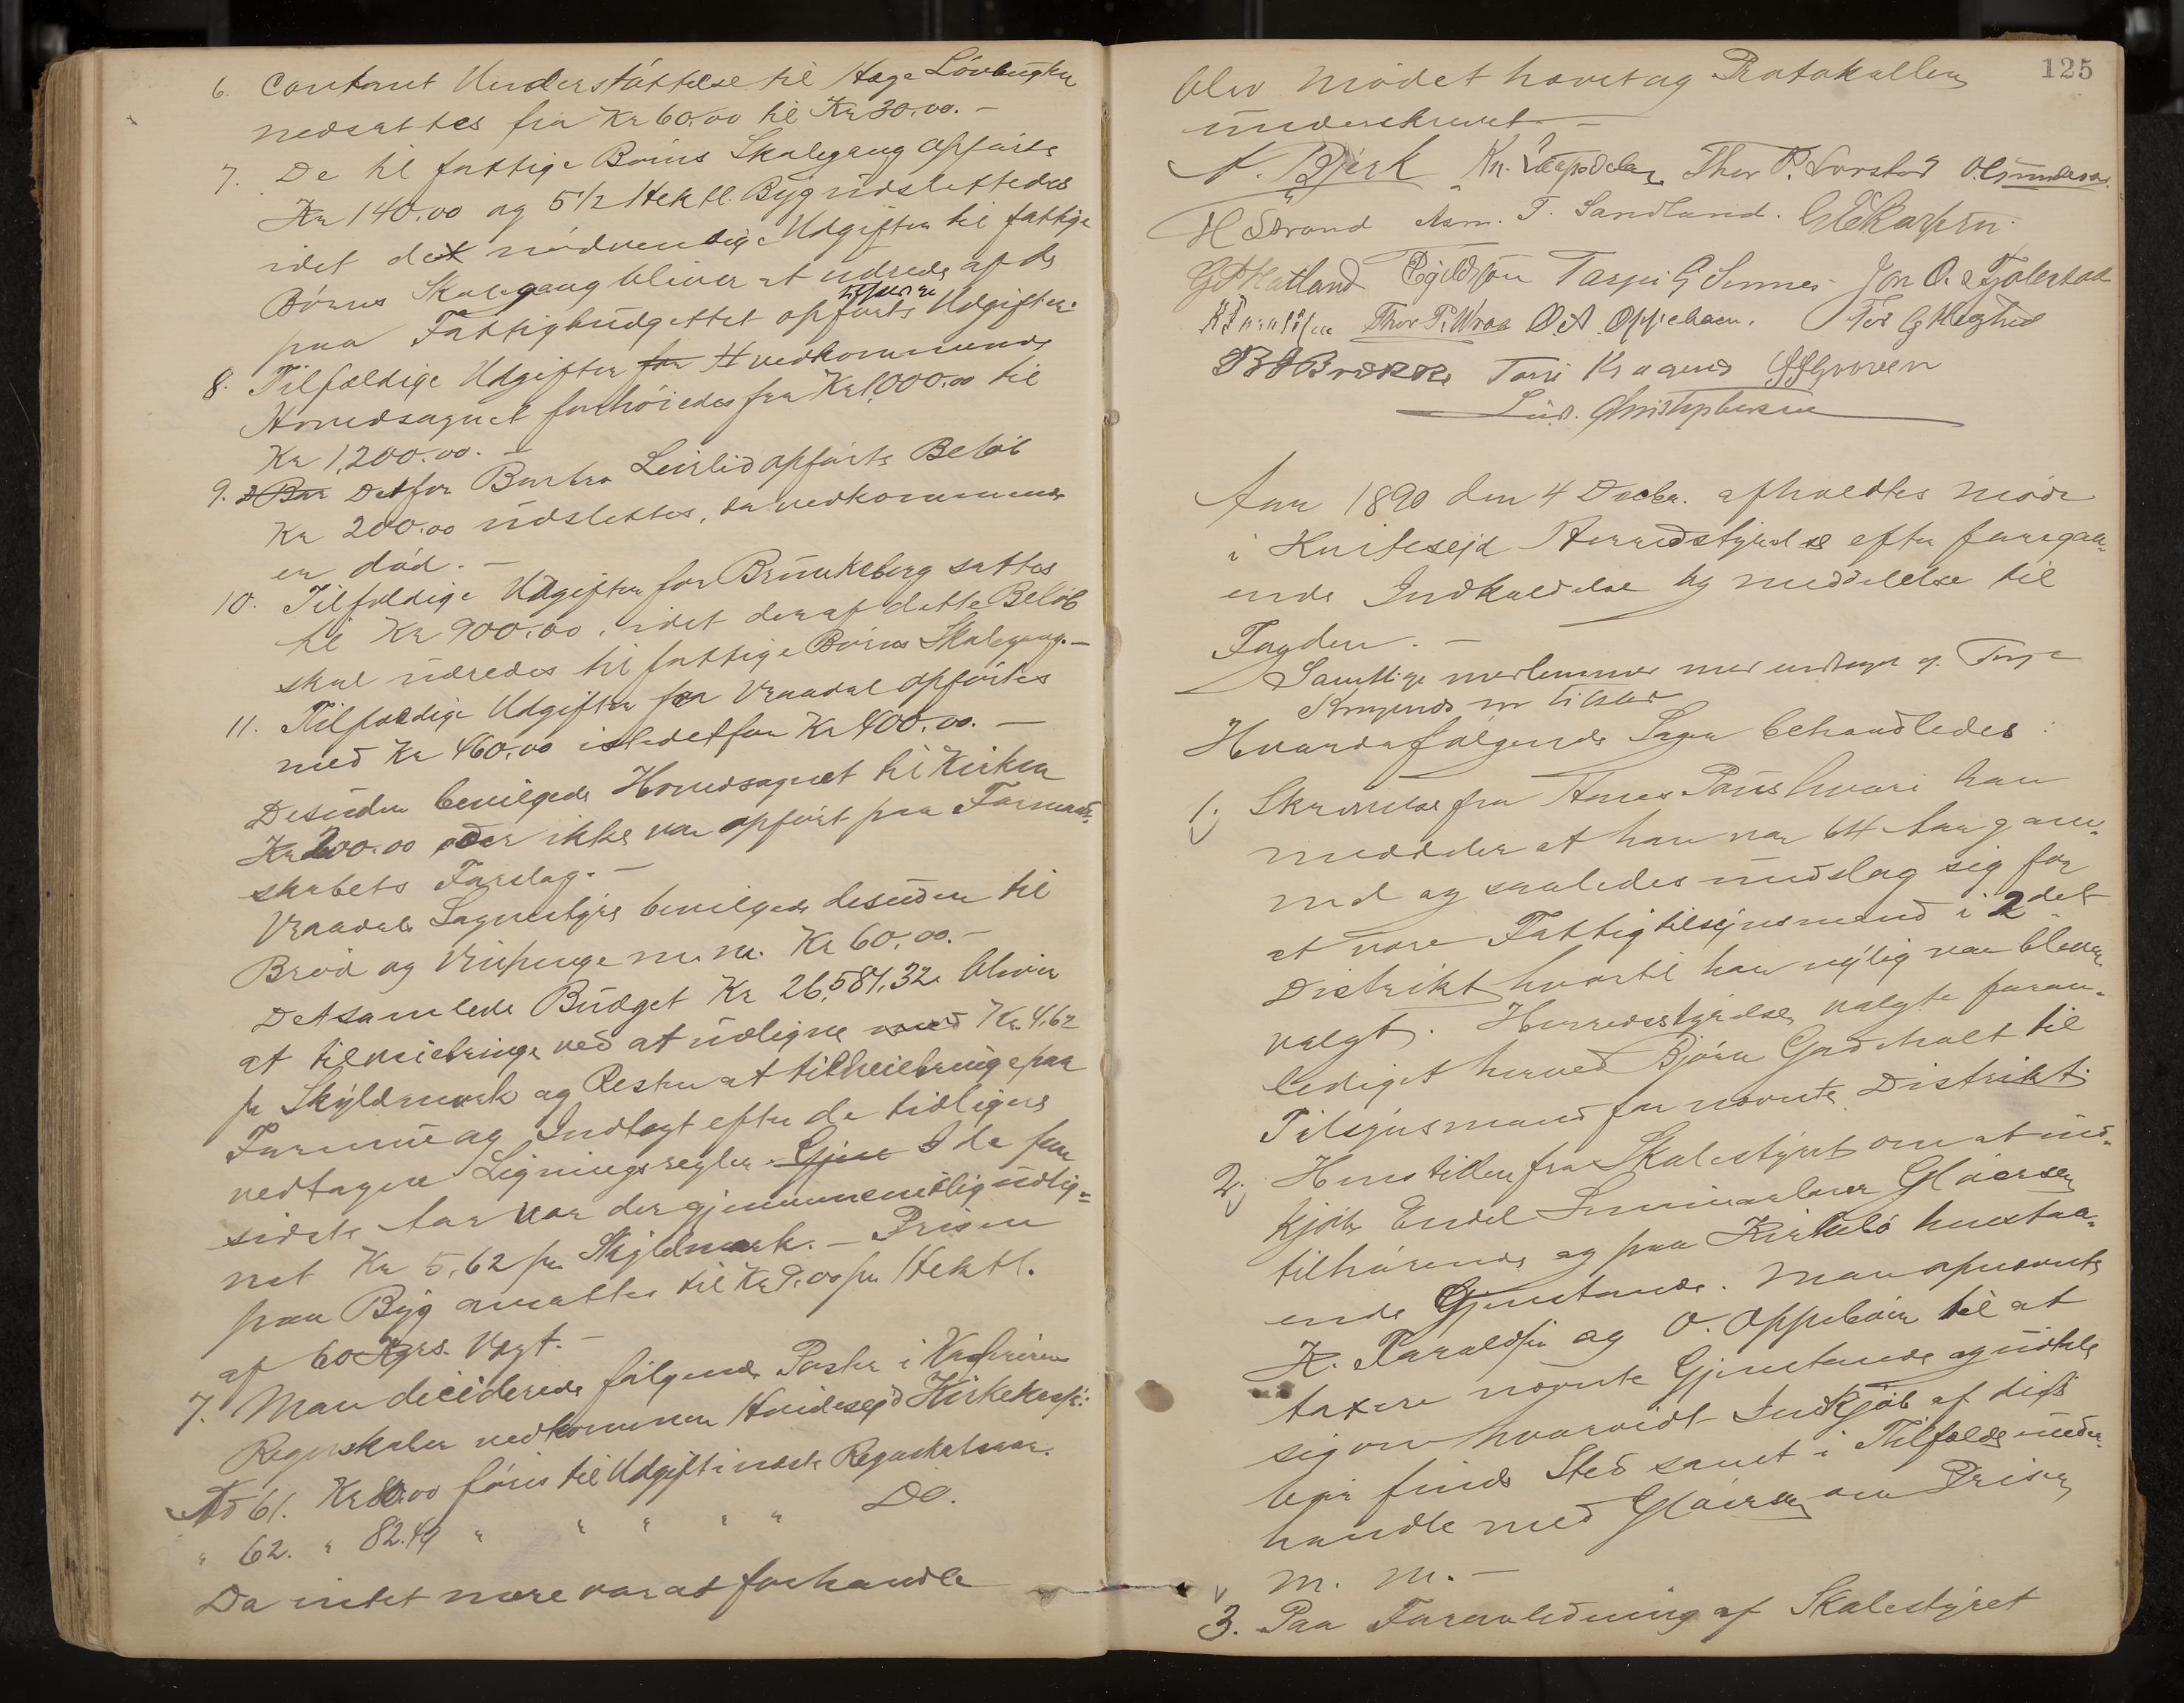 6. Contant Understøttelse til Aage Lövbugten
nedsattes fra Kr 60.00 til Kr 30.00. –
7. De til fattige Börns Skolegang opförte
Kr 140.00 og 5 1/2 Hektl. Byg udslettedes
idet det nödvendige Udgifter til fattige
Börns Skolegang bliver at udrede af de
paa Fattigbudgettet opförte Udgifter.
8. Tilfældige Udgifter for H vedkommende
Hovedsognet forhöiedes fra Kr 1,000.00 til
Kr 1,200.00. –
9. Det for Barbra Leirlid opförte Belöb
Kr 200.00 udslettes, da vedkommende
er död. –
10. Tilfeldige Udgifter for Brunkeberg sattes
til Kr 900.00, idet der af dette Belöb
skal udredes til fattige Börns Skolegang. –
11. Tilfældige Udgifter for Vraadal opförtes
med Kr 460.00 istedetfor Kr 400.00. –
Desuden bevilgede Hovedsognet til Kirken
Kr 200.00 der ikke var opfört paa Formand-
skabets Forslag. –
Vraadals Sognestyre bevilgede desuden til
Bröd og Vinpenge m. m. Kr 60.00. –
Det samlede Budget Kr 26,581,32 bliver
at tilveiebringe ved at udligne med Kr. 4.62
pr Skyldmark og Resten at tilveiebringe paa
Formue og Indtægt efter de tidligere
vedtagne Ligningsregler. Gjen I de fem
sidste Aar var der gjennemsnitlig udlig-
net Kr 5,62 pr Skyldmark. – Prisen
paa Byg ansattes til Kr 9.00 pr Hektl.
af 60 Kgrs. Vægt. –
7. Man deciderede fölgende Poster i Kassererens
Regnskaber vedkommen Hvidesejd Kirkekasse:
No 61. Kr 80.00 föres til Udgift i næste Regnskabsaar.
" 62. " 82.49 " " " " " Do.
Da intet mere var at forhandle
125
blev Mödet hævet og Protokollen
underskrevet. –
A. Bjerk Kn. Thor P. Lorstad O. Gunderson
H Strand Asm. T. Sandland.
G Hatland Tarjei G Sunnes Jon O. Fjolestad
Thor P. Wraa O A Oppeboen.
B J Brække Tarje Krogend S S Grooven
Lud. Christophersen
Aar 1890 den 4 Decbr. afholdtes möde
i Hvitesejd Herredstyrelse efter foregaa-
ende Indkaldelse og meddelelse til
Fogden. –
Samtlige medlemmer med undtagen af Tarje
Krogends var tilstede
Hvorda fölgende Sager behandledes:
1. Skrivelse fra Hans Paus hvori han
meddeler at han var 64 Aar gam-
mel og saaledes undslog sig for
at være Fattigtilsynsmand i 2det
Distrikt hvortil han nylig var bleven
valgt. Herredsstyrelsen valgte foran-
lediget herved Björn Gardsholt til
Tilsynsmand for nævnte Distrikt.
2. Henstillen fra Skolestyret om at ind-
kjöbe Endel Seminarlærer Glöersen
tilhörende og paa Kirkebö henstaa-
ende Gjenstande. Man opnævnte
K. Taraldsen og O. Oppeböen til at
taxere nævnte Gjenstande og udtale
sig om hvorvidt Indkjöb af diss
bör finde Sted samt i Tilfælde under-
handle med Glöersen om Prisen
m. m. –
3. Paa Foranledning af Skolestyret